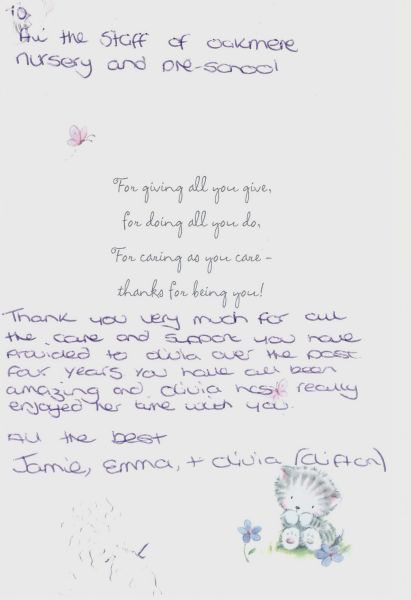 To
All the staff of oakmere
nursery and pre-school
For giving all you give,
for doing all you do,
For caring as you care -
thanks for being you!
Thank you very much for all
the care and support you have
provided to olivia over the past
four years you have all been
amazing and olivia has really
enjoyed her time with you.
All the best
Jamie, Emma, + Olivia (Clifton)